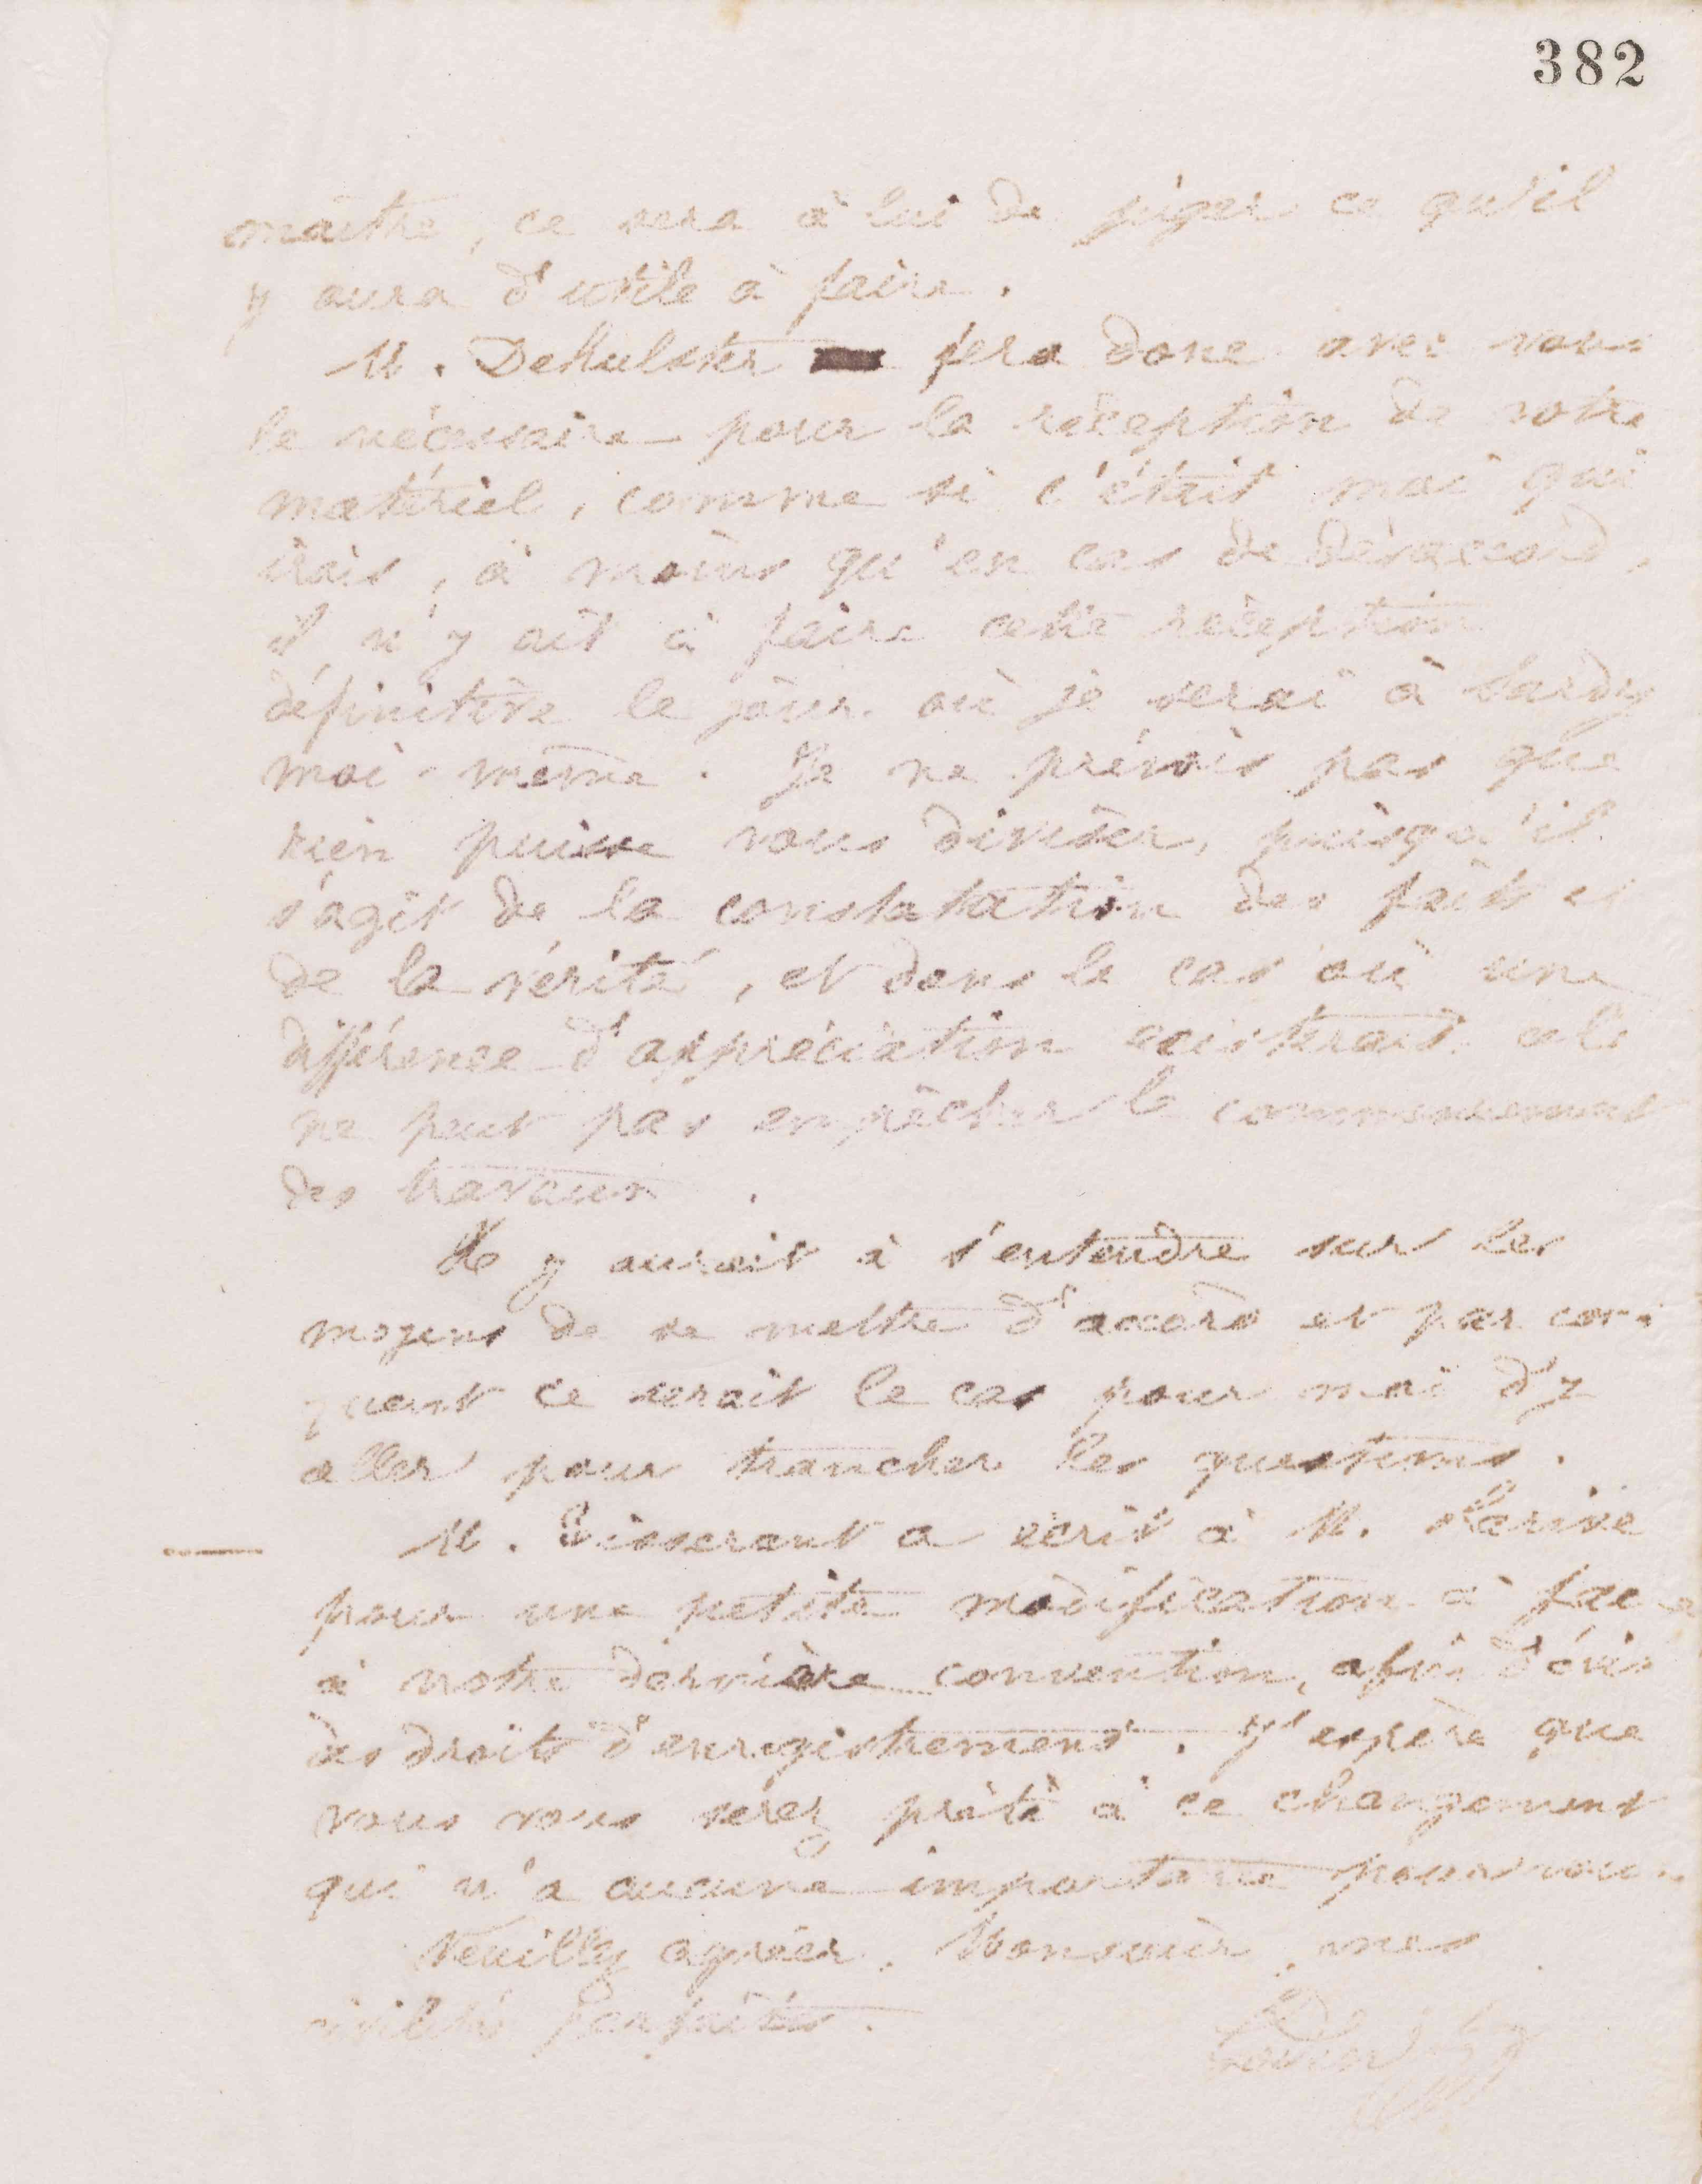 382
maître, ce sera à lui de juger ce qu'il
y aura d'utile à faire.
M. Dehulster fera donc avec vous
le nécessaire pour la réception de votre
matériel, comme si c'était moi qui
irais, à moins qu'en cas de désaccord,
il n'y ait à faire cette réception
définitive le jour où je serai à Sardy
moi-même. Je ne prévois pas que
rien puisse vous diviser, puisqu'il
s'agit de la constatation des faits et
de la vérité, et dans le cas où une
différence d'appréciation existerait cela
ne peut pas empêcher le commencement
des travaux.
Il y aurait à s'entendre sur les
moyens de se mettre d'accord et par con
quent ce serait le cas pour moi d'y
aller pour trancher les questions.
M. Tisserant a écrit à M. Larive
pour une petite modification à faire
à notre dernière convention, afin d'évi
des droits d'enregistrement. J'espère que
vous vous serez prêté à ce changement
qui n'a aucune importance pour vous.
Veuillez agréer, Monsieur, mes
civilités parfaites.
Godin